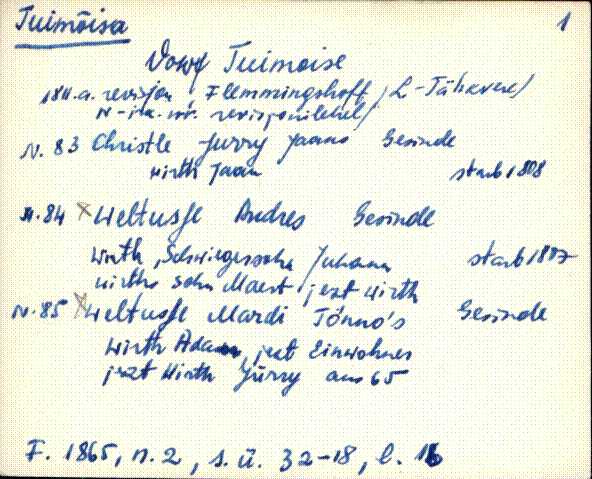 Tuimõisa 1
Dorf Tuimoise
1811.a. revisjon Flemmingshoff, (L-Tähkvere)
N-ite. nr. revisjonilehel)
N. 83 Christle Jurry Jaans Gesinde
wirth Jaan starb 1808
N. 84 x Weltusse Andres Gesinde
Wirth, Schwiegersohn Juhann starb 1807
wirths sohn Maert jezt Wirth
N. 85 x Weltusse Mardi Tönno's Gesinde
Wirth Adam, jezt Einwohner
jezt Wirth Jürry aus 65
F. 1865, n. 2, s. ü. 32-18, l. 16